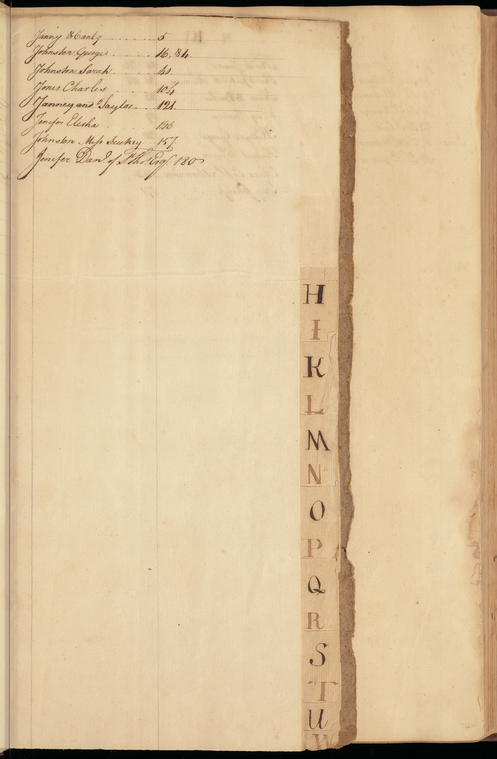 Janny & Cantz 5
Johnston George 16, 84
Johnston Sarah 41
Jones Charles 104
Janney and Taylor 121
Jenifer Elisha 136
Johnston Miss Suckey 157
Jenifer Danl. of St Tho. Esqr 180
H
I
K
L
M
N
O
P
Q
R
S
T
U
W